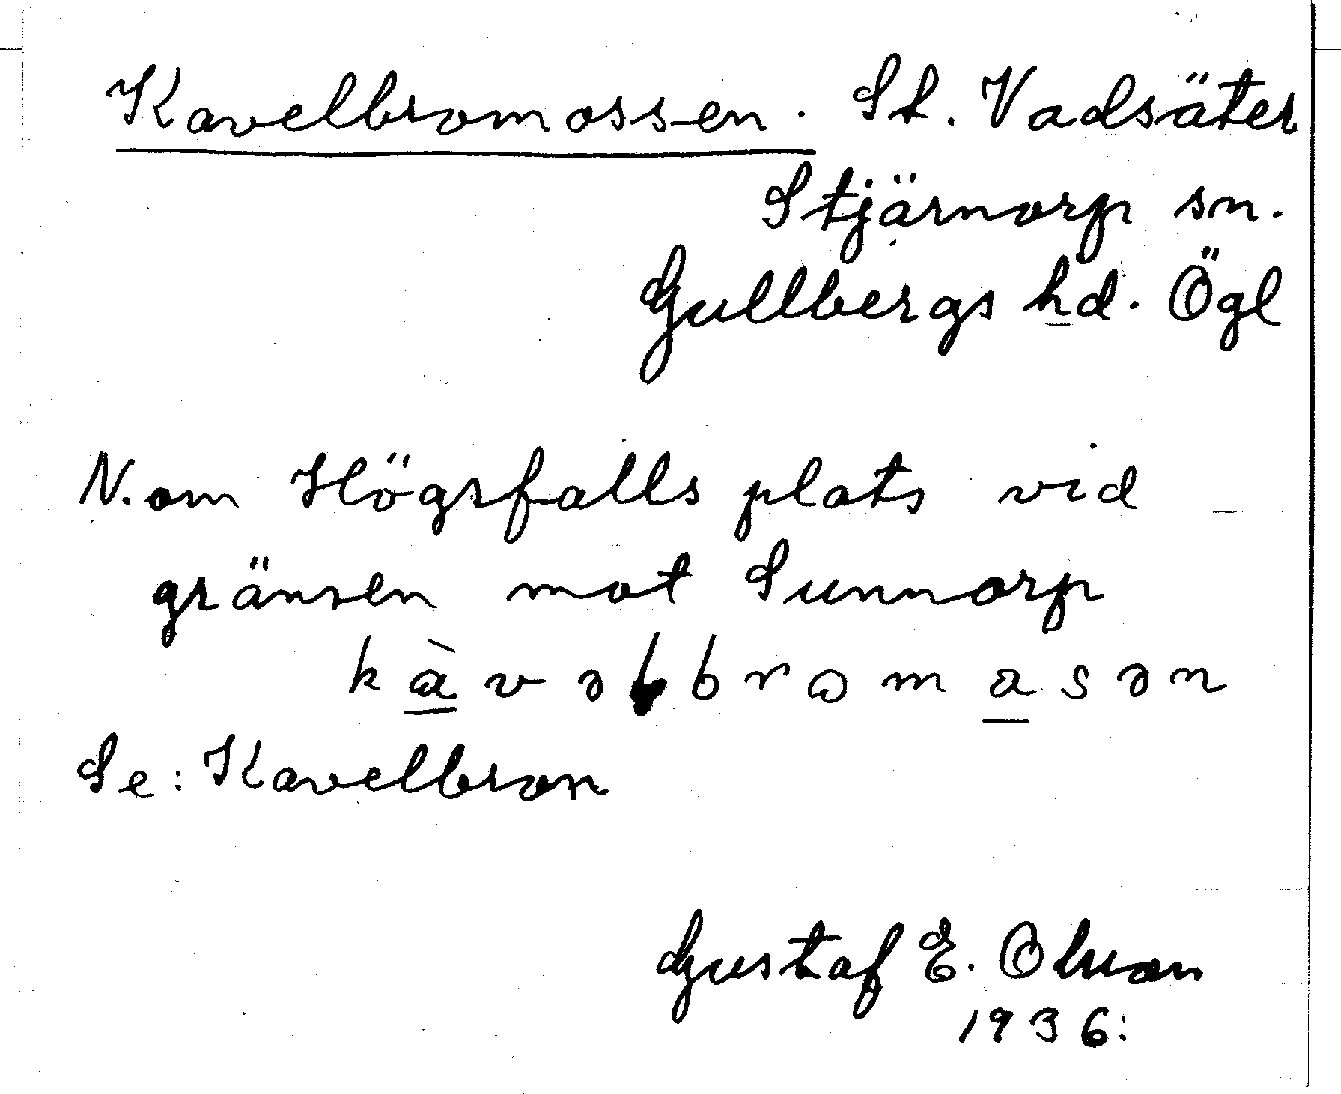 Kavelbromossen. St. Vadsäter
Stjärnorp sn.
Gullbergs hd. Ögl
N. om Högsfalls plats vid
gränsen mot Sunnorp
kàvəbbromasən
Se: Kavelbron
Gustaf E. Olsson
1936: